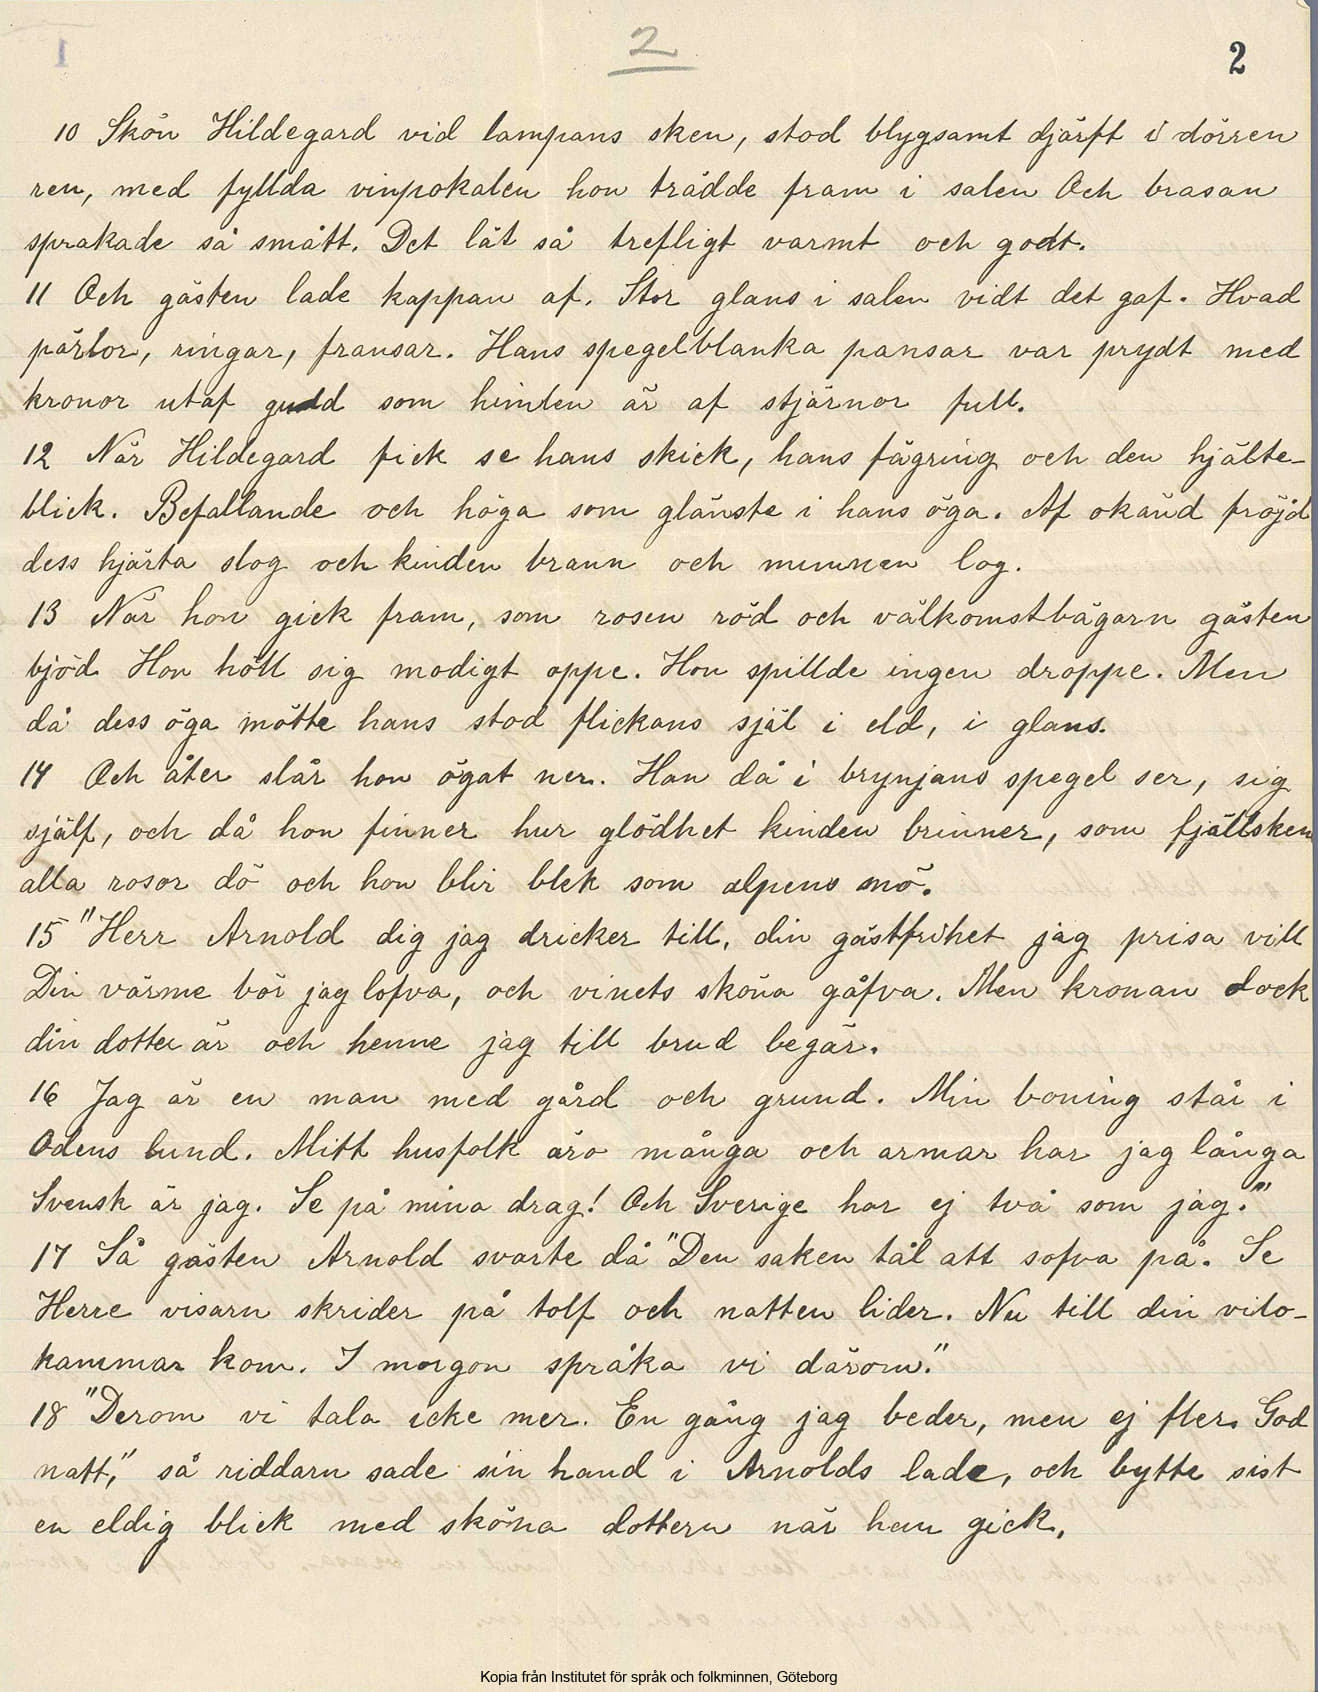 2
2
10 Skön Hildegard vid lampans sken, stod blygsamt djärft i dörren
ren, med fyllda vinpokalen hon trädde fram i salen Och brasan
sprakade så smått. Det lät så trefligt varmt och godt.
11 Och gästen lade kappan af. Stor glans i salen vidt det gaf. Hvad
pärlor, ringar, fransar. Hans spegelblanka pansar var prydt med
kronor utaf guld som himlen är af stjärnor full.
12 När Hildegard fick se hans skick, hans fägring och den hjälte-
blick. Befallande och höga som glänste i hans öga. Af okänd fröjd
dess hjärta slog och kinden brann och munnen log.
13 När hon gick fram, som rosen röd och välkomstbägarn gästen
bjöd Hon höll sig modigt oppe. Hon spillde ingen droppe. Men
då dess öga mötte hans stod flickans själ i eld, i glans.
14 Och åter slår hon ögat ner. Hon då i brynjans spegel ser, sig
själf, och då hon finner hur glödhet kinden brinner, som fjällsken
alla rosor dö och hon blir blek som alpens snö.
15 "Herr Arnold dig jag dricker till, din gästfrihet jag prisa vill
Din värme bör jag lofva, och vinets sköna gåfva. Men kronan dock
din dotter är och henne jag till brud begär.
16 Jag är en man med gård och grund. Min boning står i
Odens lund. Mitt husfolk äro många och armar har jag långa
Svensk är jag. Se på mina drag! Och Sverige har ej två som jag."
17 Så gästen Arnold svarte då "Den saken tål att sofva på. Se
Herre visarn skrider på tolf och natten lider. Nu till din vilo-
kammar kom. I morgon språka vi därom."
18 "Derom vi tala icke mer. En gång jag beder, men ej fler. God
natt," så riddarn sade sin hand i Arnolds lade, och bytte sist
en eldig blick med sköna dottern när han gick.
Kopia från Institutet för språk och folkminnen, Göteborg